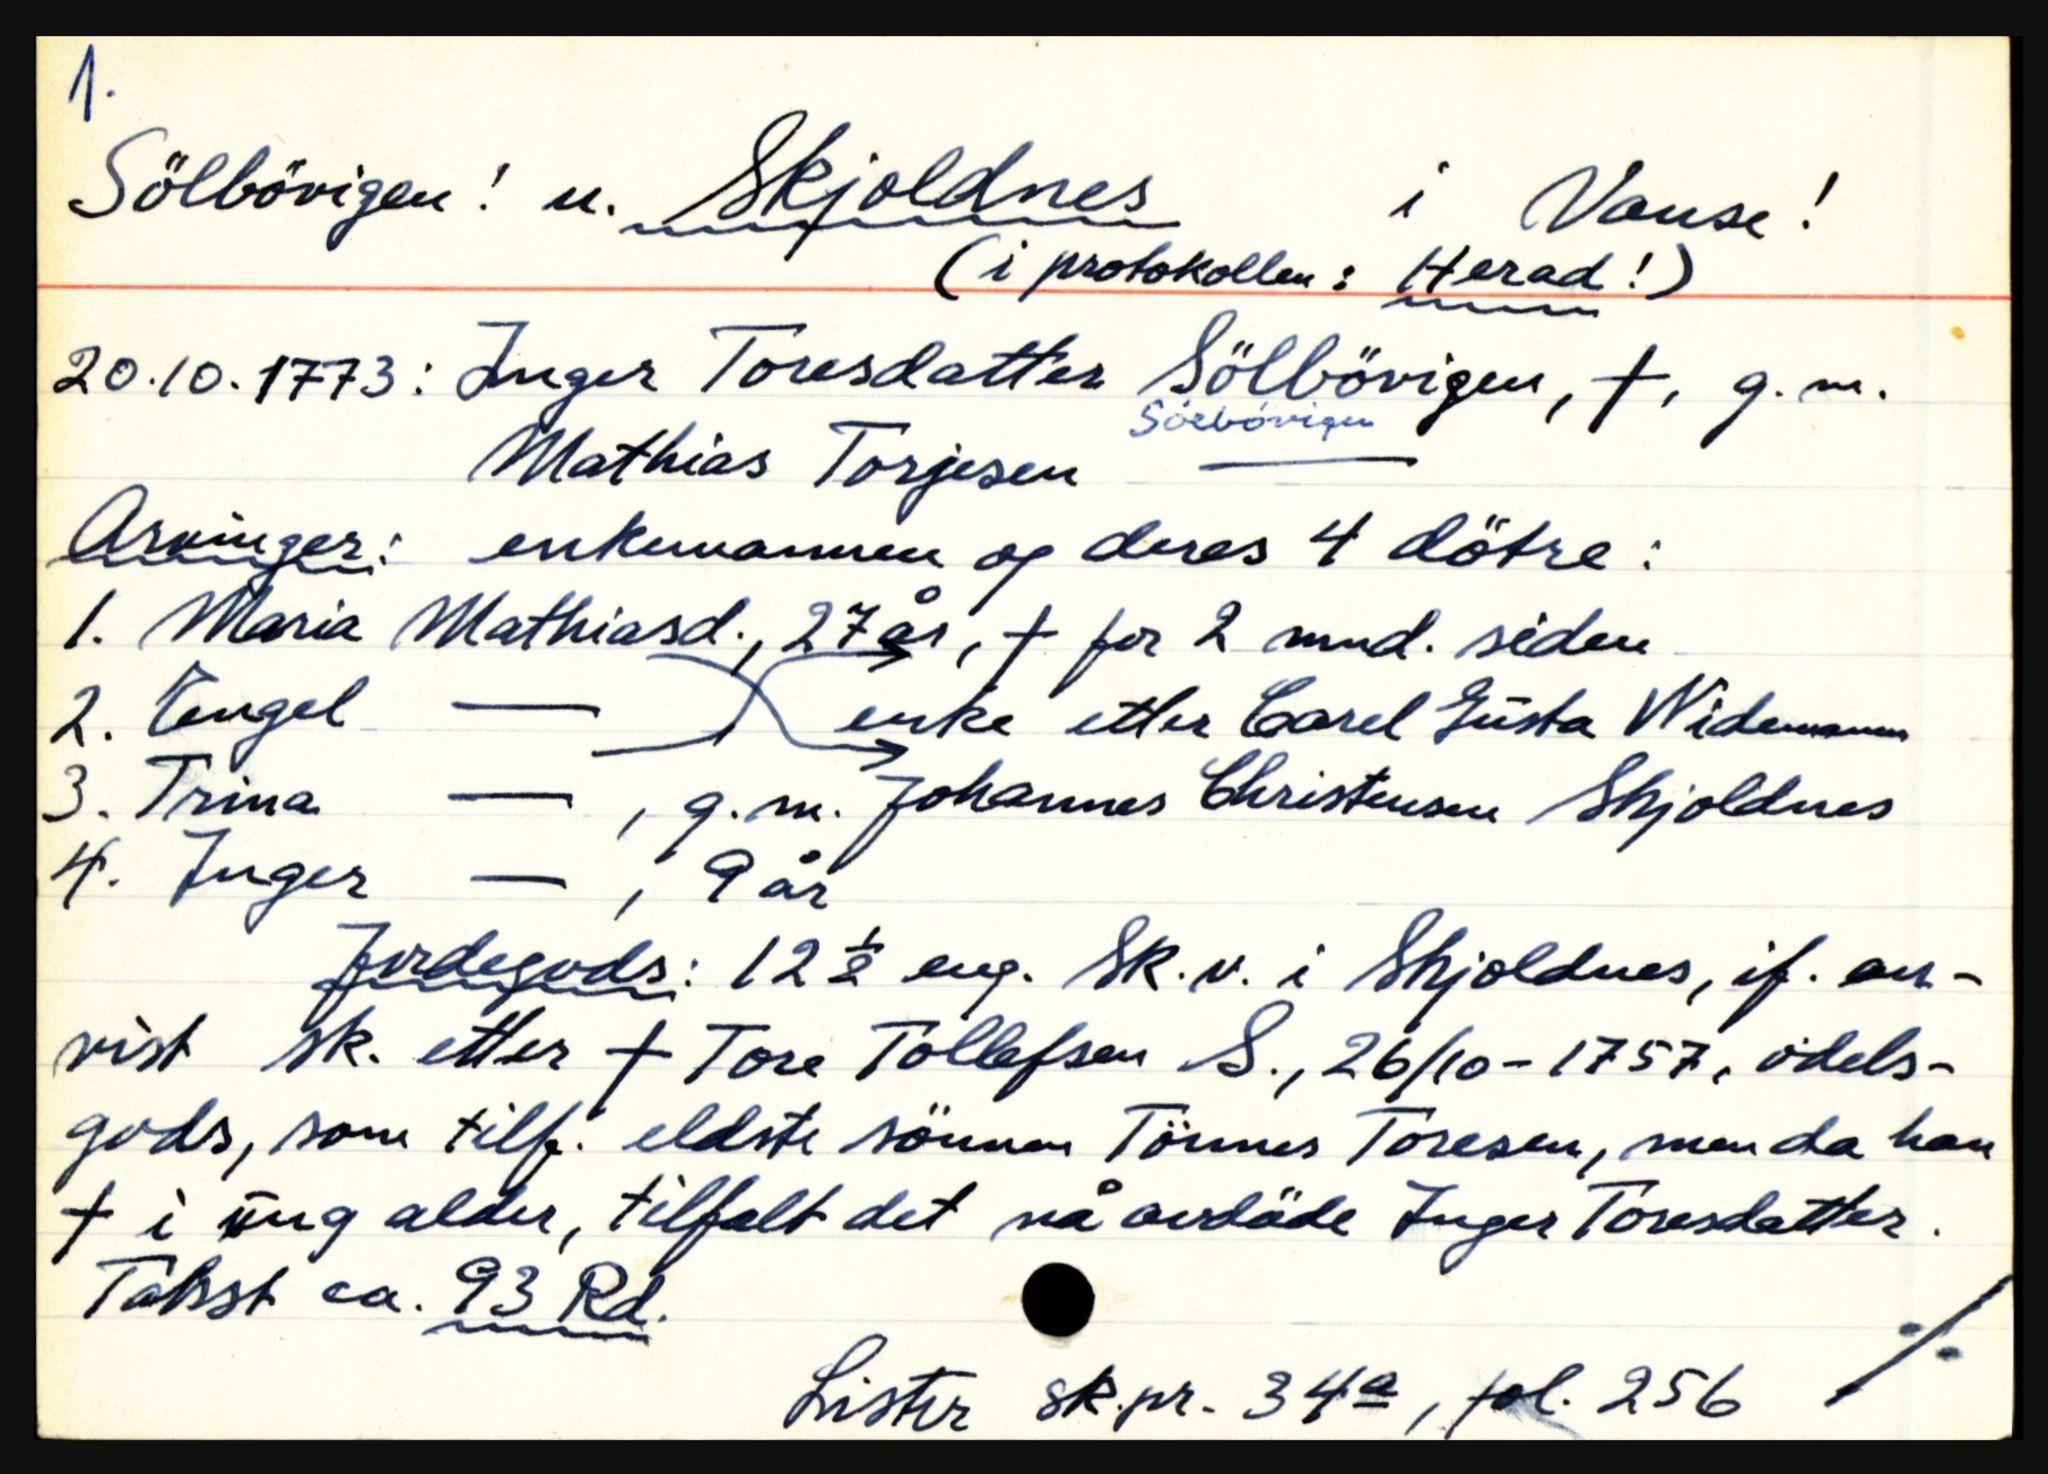 1.
Sölbövigen! u. Skjoldnes i Vanse!
(i protokollen: Herad!)
20.10.1773: Inger Toresdatter Sölbövigen, †, g.m.
Sörbövigen
Mathias Torjesen —
Arvinger: enkemannen og deres 4 dötre:
1. Maria Mathiasd., 27 år, † for 2 mnd. siden
2. Engel — enke etter Carel Gusta Widemann
3. Trina —, g.m. Johannes Christensen Skjoldnes
4. Inger —, 9 år
Jordegods: 12½ eng. sk.v. i Skjoldnes, if. an-
vist sk. etter † Tore Tollefsen S., 26/10-1757, odels-
gods, som tilf. eldste sönnen Tönnes Toresen, men da han
† i ung alder, tilfalt det nå avdöde Inger Toresdatter.
Takst ca. 93 Rd.
Lister sk.pr. 34a, fol. 256 ./.